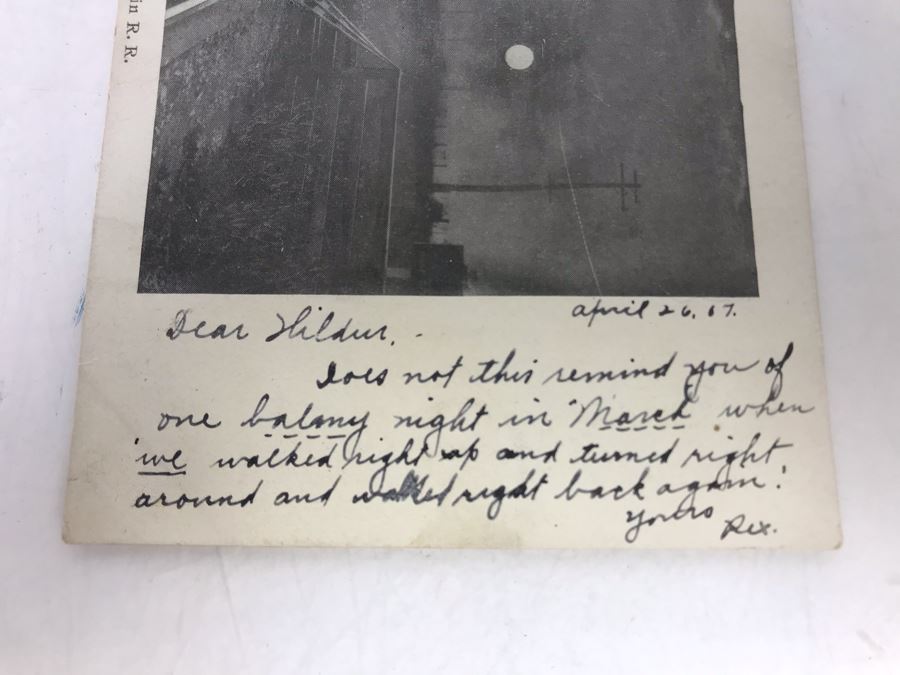 in R. R.
april 26, 07.
Dear Hildur, -
Does not this remind you of
one balmy night in "March" when
'we walked right up and turned right
around and walked right back again!'
Yours Rex.